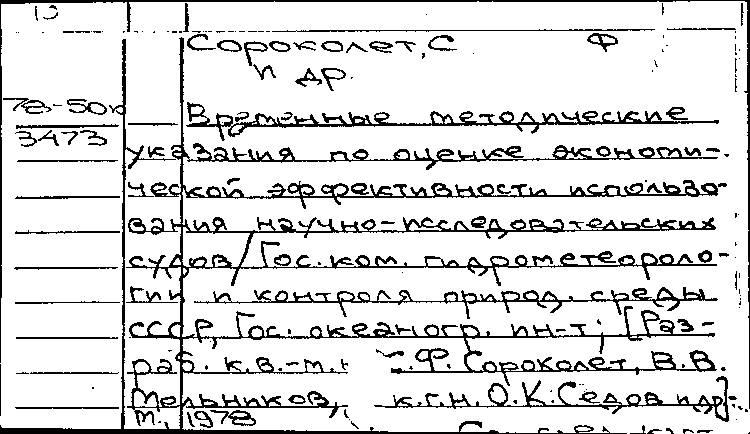 Сороколет, С Ф
и др.
78-50к
3473
Временные методические
указания по оценке экономи-
ческой эффективности использо-
вания научно-исследовательских
судов/Гос. ком. гидрометеороло-
гии и контроля природ. среды
СССР, Гос. океаногр. ин-т; [Раз-
раб. к.в.-м.н С.Ф. Сороколет, В.В.
Мельников, к.г.н. О.К. Седов и др].-
М., 1978